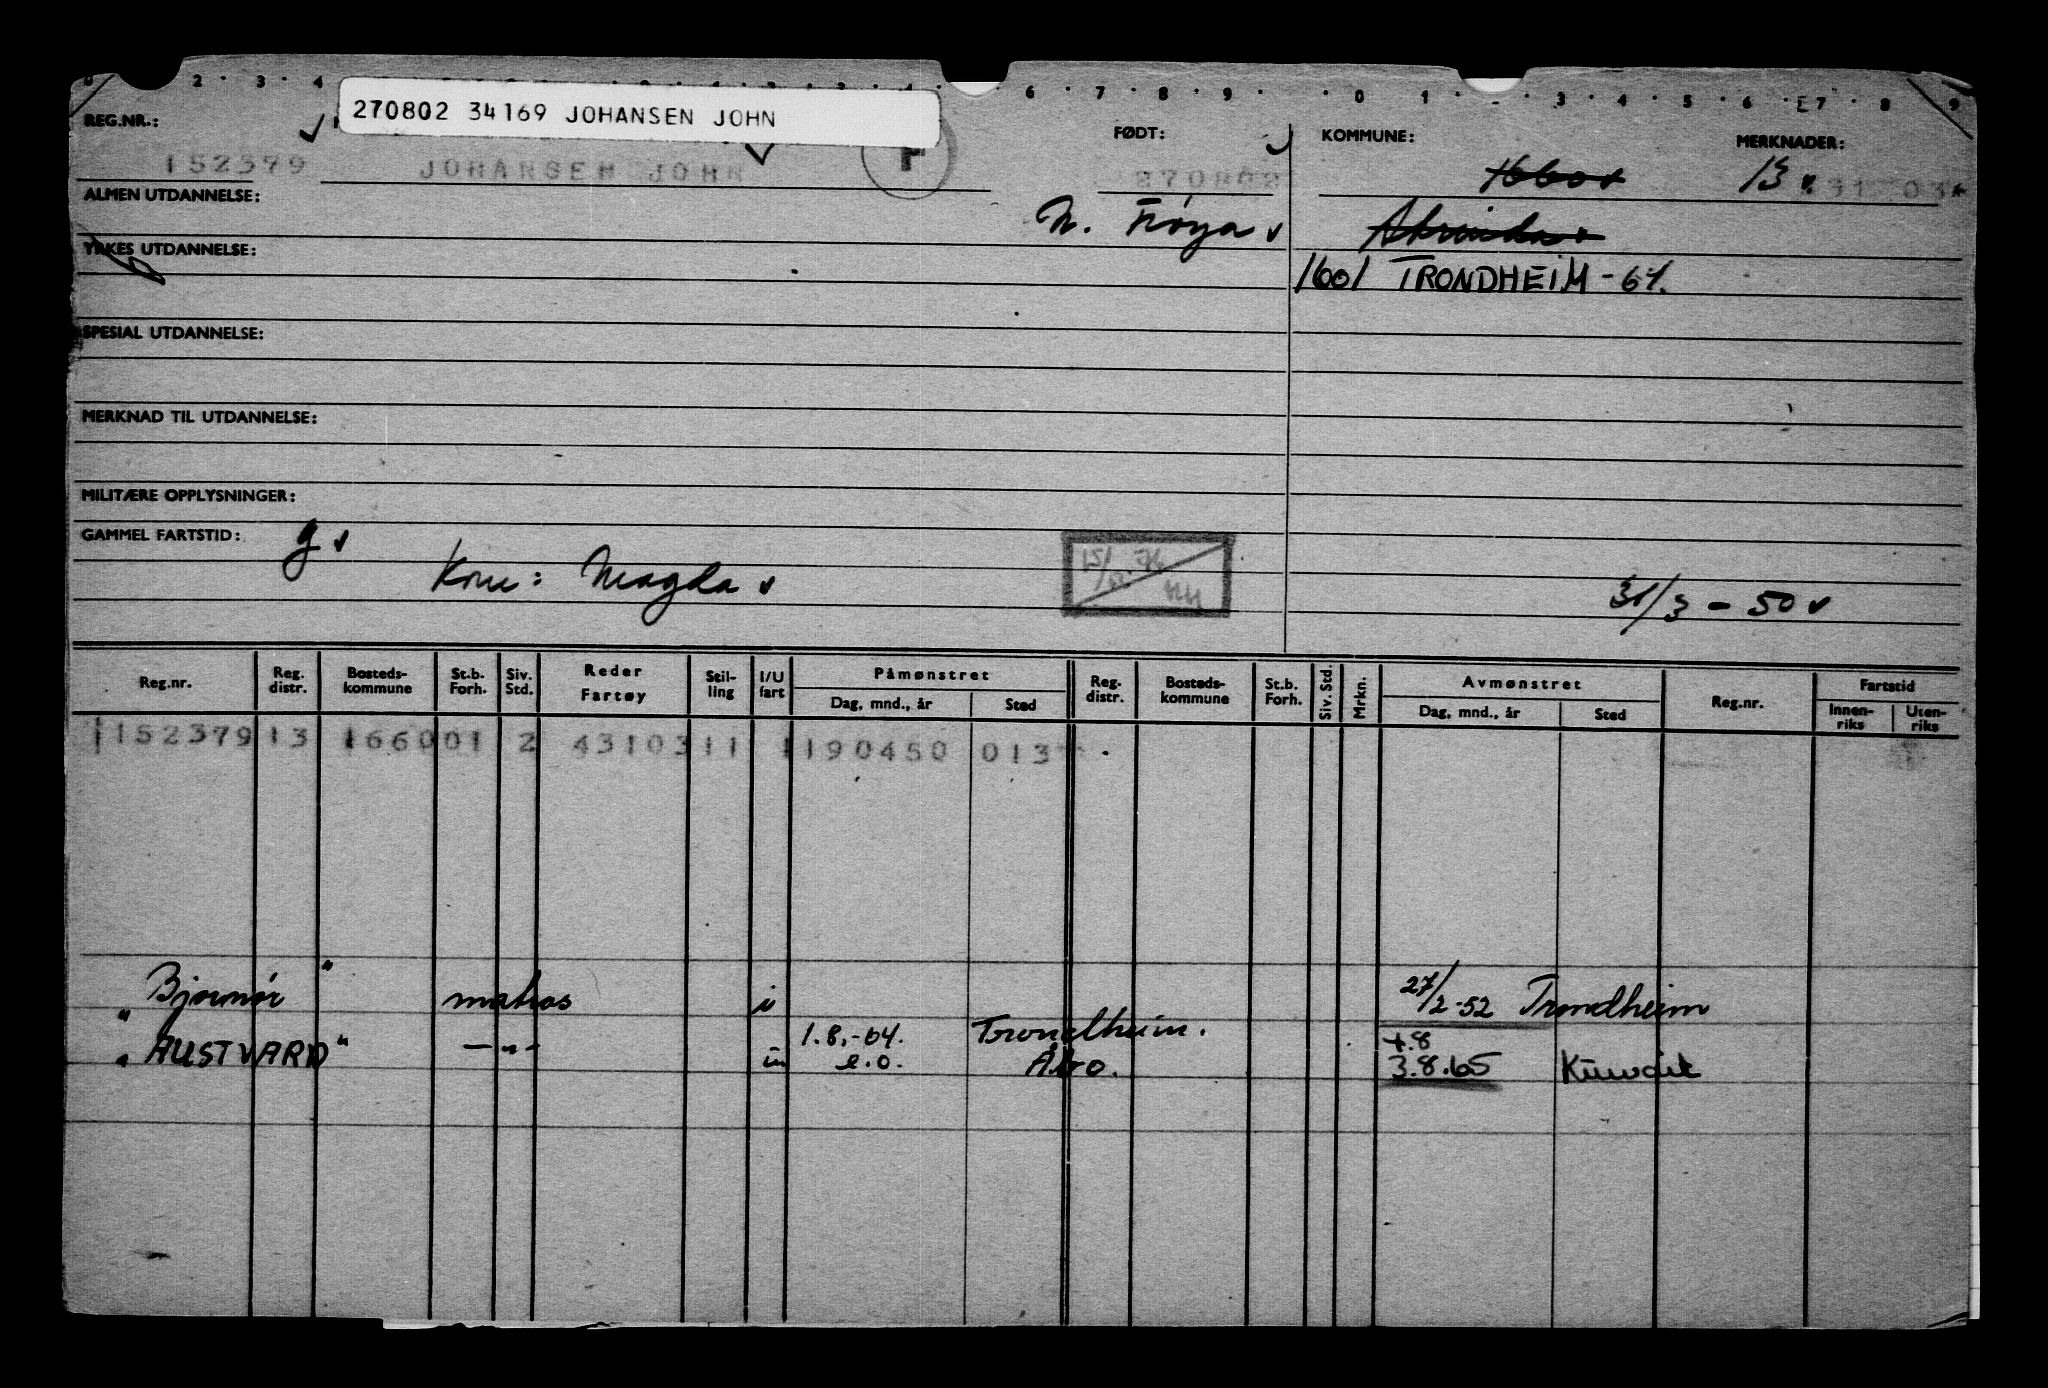 270802 34169 JOHANSEN JOHN
REG.NR.: FØDT: KOMMUNE: MERKNADER:
152379 JOHANSEN JOHN 270802 1660 13
ALMEN UTDANNELSE:
N. Frøya Strinda
YRKES UTDANNELSE:
1601 TRONDHEIM - 64.
SPESIAL UTDANNELSE:
MERKNAD TIL UTDANNELSE:
MILITÆRE OPPLYSNINGER:
GAMMEL FARTSTID: g
Kone: Magda
31/3 - 50
Reg.nr. Reg. distr. Bosteds-kommune St.b. Forh. Siv. Std. Reder Fartøy Stil-ling I/U fart Påmønstret Dag, mnd., år Sted Reg. distr. Bosteds-kommune St.b. Forh. Siv. Std. Mrkn. Avmønstret Dag, mnd., år Sted Reg.nr. Fartstid Innen-riks Uten-riks
1152379 13 166001 2 4310311 1190450 013
"Bjørnør" matros i 27/2-52 Trondheim
1.8.-64. Trondheim. 4.8
"AUSTVARD" — " — in e.o. Åbo. 3.8.65